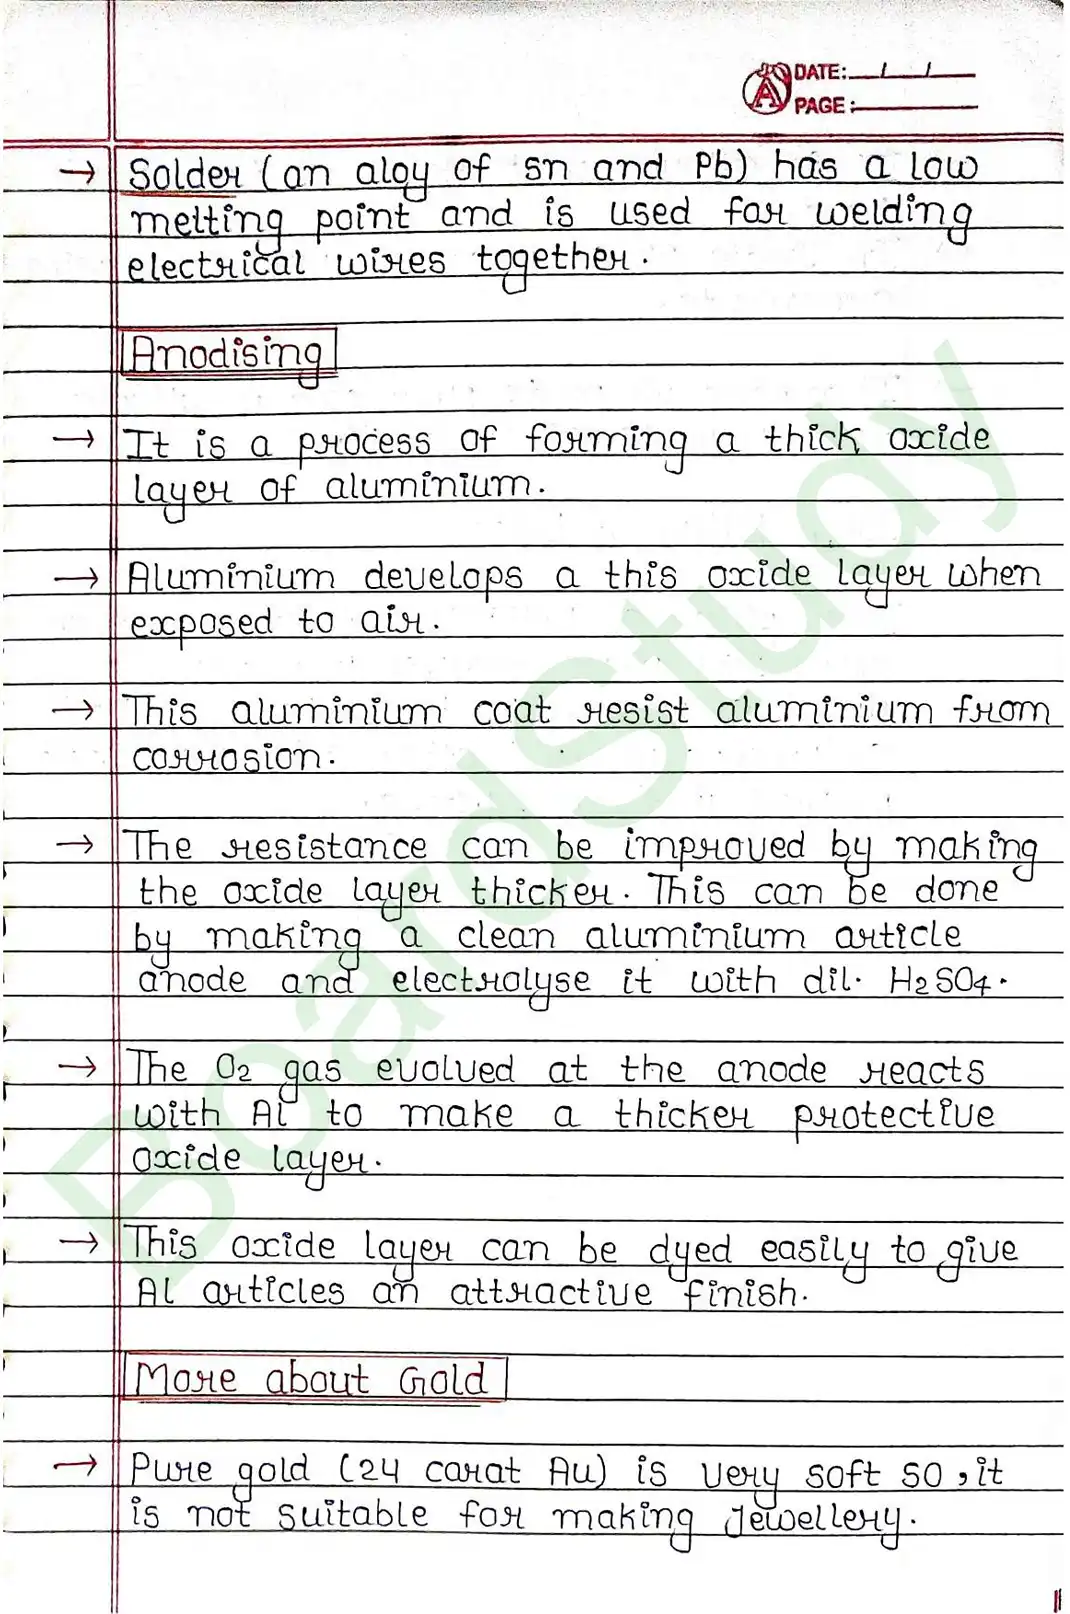 DATE: / /
PAGE:
→ Solder (an aloy of Sn and Pb) has a low
melting point and is used for welding
electrical wires together.
Anodising
→ It is a process of forming a thick oxide
layer of aluminium.
→ Aluminium develops a this oxide layer when
exposed to air.
→ This aluminium coat resist aluminium from
corrosion.
→ The resistance can be improved by making
the oxide layer thicker. This can be done
by making a clean aluminium article
anode and electrolyse it with dil. H2SO4.
→ The O2 gas evolved at the anode reacts
with Al to make a thicker protective
oxide layer.
→ This oxide layer can be dyed easily to give
Al articles an attractive finish.
More about Gold
→ Pure gold (24 carat Au) is very soft so, it
is not suitable for making Jewellery.
BoardStudy